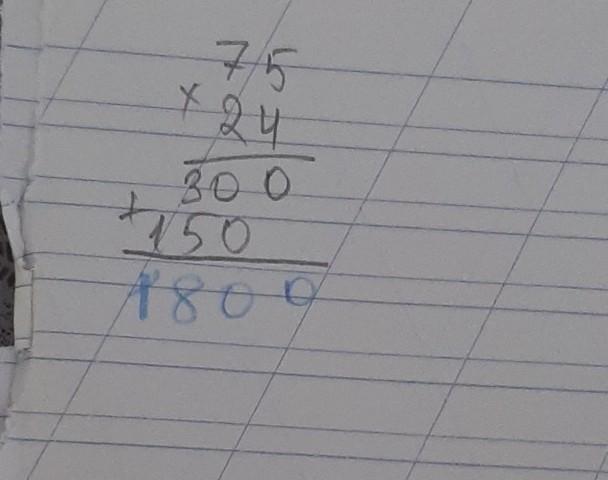 75
×
24
300
+
150
1800